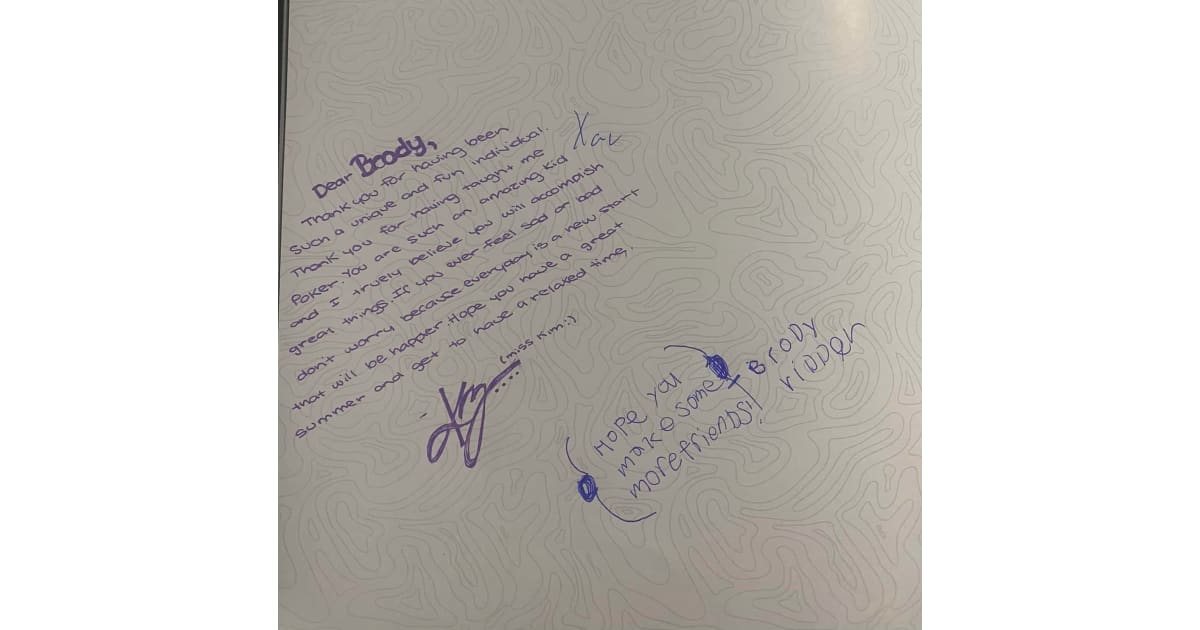 Dear Brody,
Thank you for having been
such a unique and fun individual.
Thank you for having taught me
Poker. You are such an amazing kid
and I truely believe you will accomplish
great things. If you ever feel sad or bad
don't worry because everyday is a new start
that will be happer. Hope you have a great
summer and get to have a relaxed time.
(miss Kim :)
Xav
Hope you
make some
more friends!
- Brody
ridder